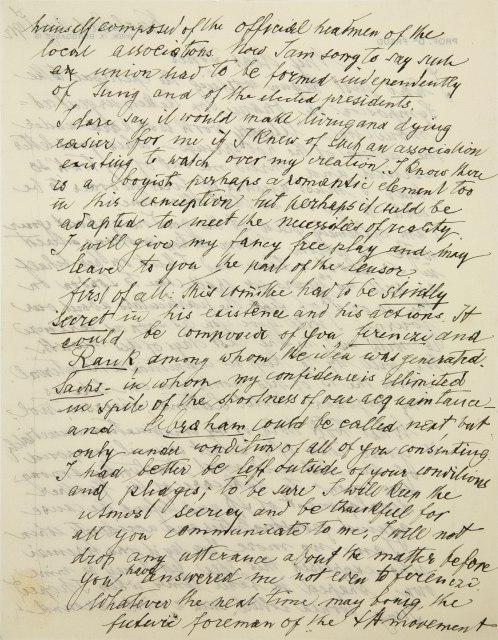 himself composed of the official headmen of the
local associations. Now I am sorry to say such
an union had to be formed independently
of Jung and of the elected presidents.
I dare say it would make living and dying
easier for me if I knew of such an association
existing to watch over my creation. I know there
is a boyish perhaps a romantic element too
in this conception but perhaps it could be
adapted to meet the necessities of reality.
I will give my fancy free play and may
leave to you the part of the Censor.
First of all: This comittee had to be strictly
secret in his existence and his actions. It
could be composed of you, Ferenczi and
Rank among whom the idea was generated.
Sachs – in whom my confidence is illimited
in spite of the shortness of our acquaintance –
and Abraham could be called next but
only under condition of all of you consenting.
I had better be left outside of your conditions
and pledges; to be sure I will keep the
utmost secrecy and be thankful for
all you communicate to me. I will not
drop any utterance about the matter before
you have answered me not even to Ferenczi.
Whatever the next time may bring, the
future foreman of the ΨA movement